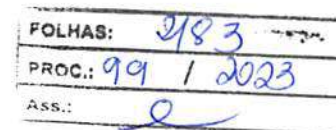 FOLHAS: 2183
PROC.: 99 / 2023
Ass.: